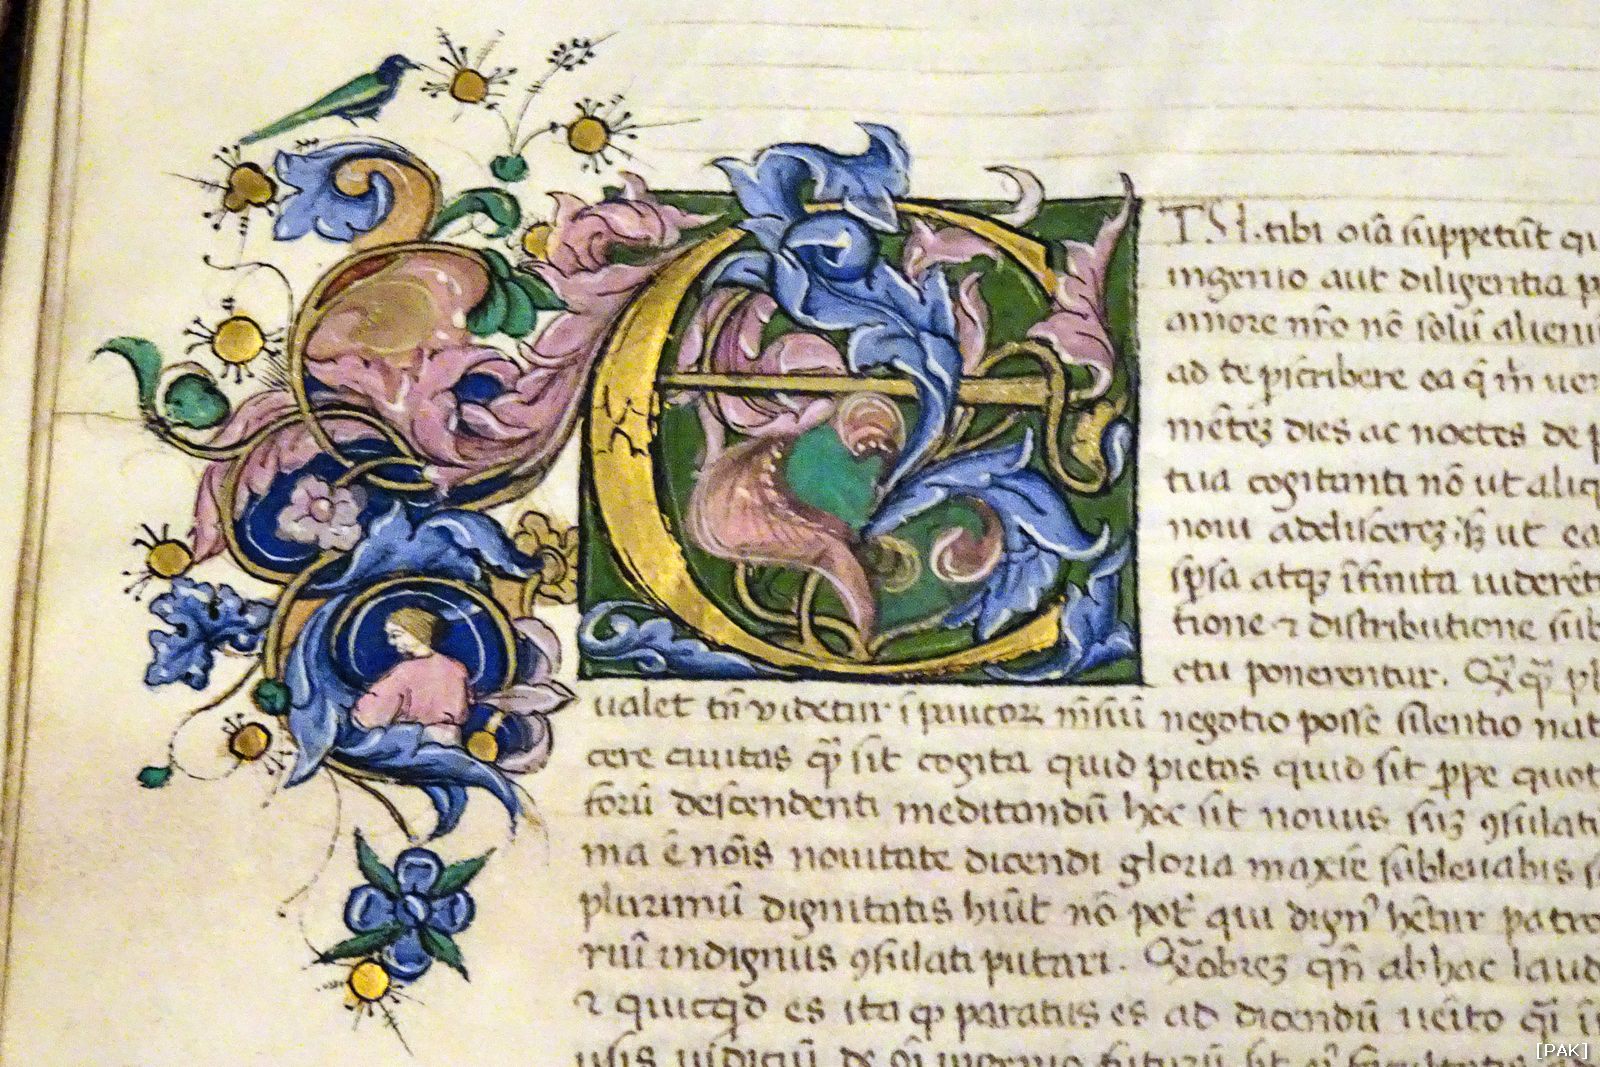 E TSI tibi oīa suppetūt qu
ingenio aut diligentia
amore nr̄o nō solū alieni
ad te p̱scribere ea q̄ m̄ ue
mētez dies ac noctes de
tua cogitanti nō ut aliq
noui adiscerez sꝫ ut ea
sp̄sa atqꝫ īfinita uiderēt
tione ⁊ distributione sub
ctu ponerentur. Q̄q̄ pl
ualet tm̄ videtur ī paucoꝝ m̄siū negotio posse silentio nat
cere ciuitas q̄ sit cogita quid pietas quid sit ꝓpe quot
forū descendenti meditandū hoc sit nouus suꝫ ꝯsulatū
ma ē nōīs nouitate dicendi gloria maxīe subleuabis s
plurimū dignitatis hiūt nō pot̄ qui dignꝰ hētur patro
ruī indignus ꝯsulati putari. Q̄obrez qn̄ ab hac laud
⁊ quicqd es ita ꝙ paratus es ad dicendū ueīto q̄ī ī